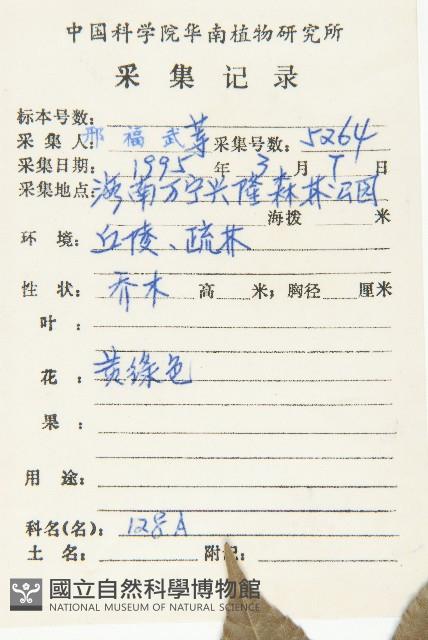 中国科学院华南植物研究所
采集记录
标本号数:
采集人: 邢福武等 采集号数: 5264
采集日期: 1995 年 3 月 日
采集地点: 海南万宁兴隆森林公园
海拨 米
环境: 丘陵、疏林
性状: 乔木 高 米; 胸径 厘米
叶:
花: 黄绿色
果:
用途:
科名(名): 12号A
土名: 附记:
國立自然科學博物館
NATIONAL MUSEUM OF NATURAL SCIENCE